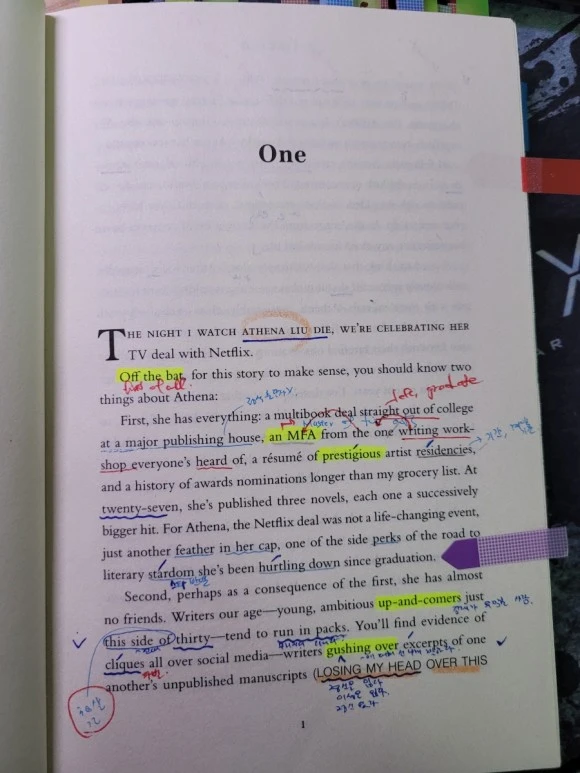 One
THE NIGHT I WATCH ATHENA LIU DIE, WE'RE CELEBRATING HER
TV deal with Netflix.
Off the bat, for this story to make sense, you should know two
first of all
things about Athena:
First, she has everything: a multibook deal straight out of college
at a major publishing house, an MFA from the one writing work-
shop everyone's heard of, a résumé of prestigious artist residencies,
and a history of awards nominations longer than my grocery list. At
twenty-seven, she's published three novels, each one a successively
bigger hit. For Athena, the Netflix deal was not a life-changing event,
just another feather in her cap, one of the side perks of the road to
literary stardom she's been hurtling down since graduation.
Second, perhaps as a consequence of the first, she has almost
no friends. Writers our age—young, ambitious up-and-comers just
this side of thirty—tend to run in packs. You'll find evidence of
cliques all over social media—writers gushing over excerpts of one
another's unpublished manuscripts (LOSING MY HEAD OVER THIS
1